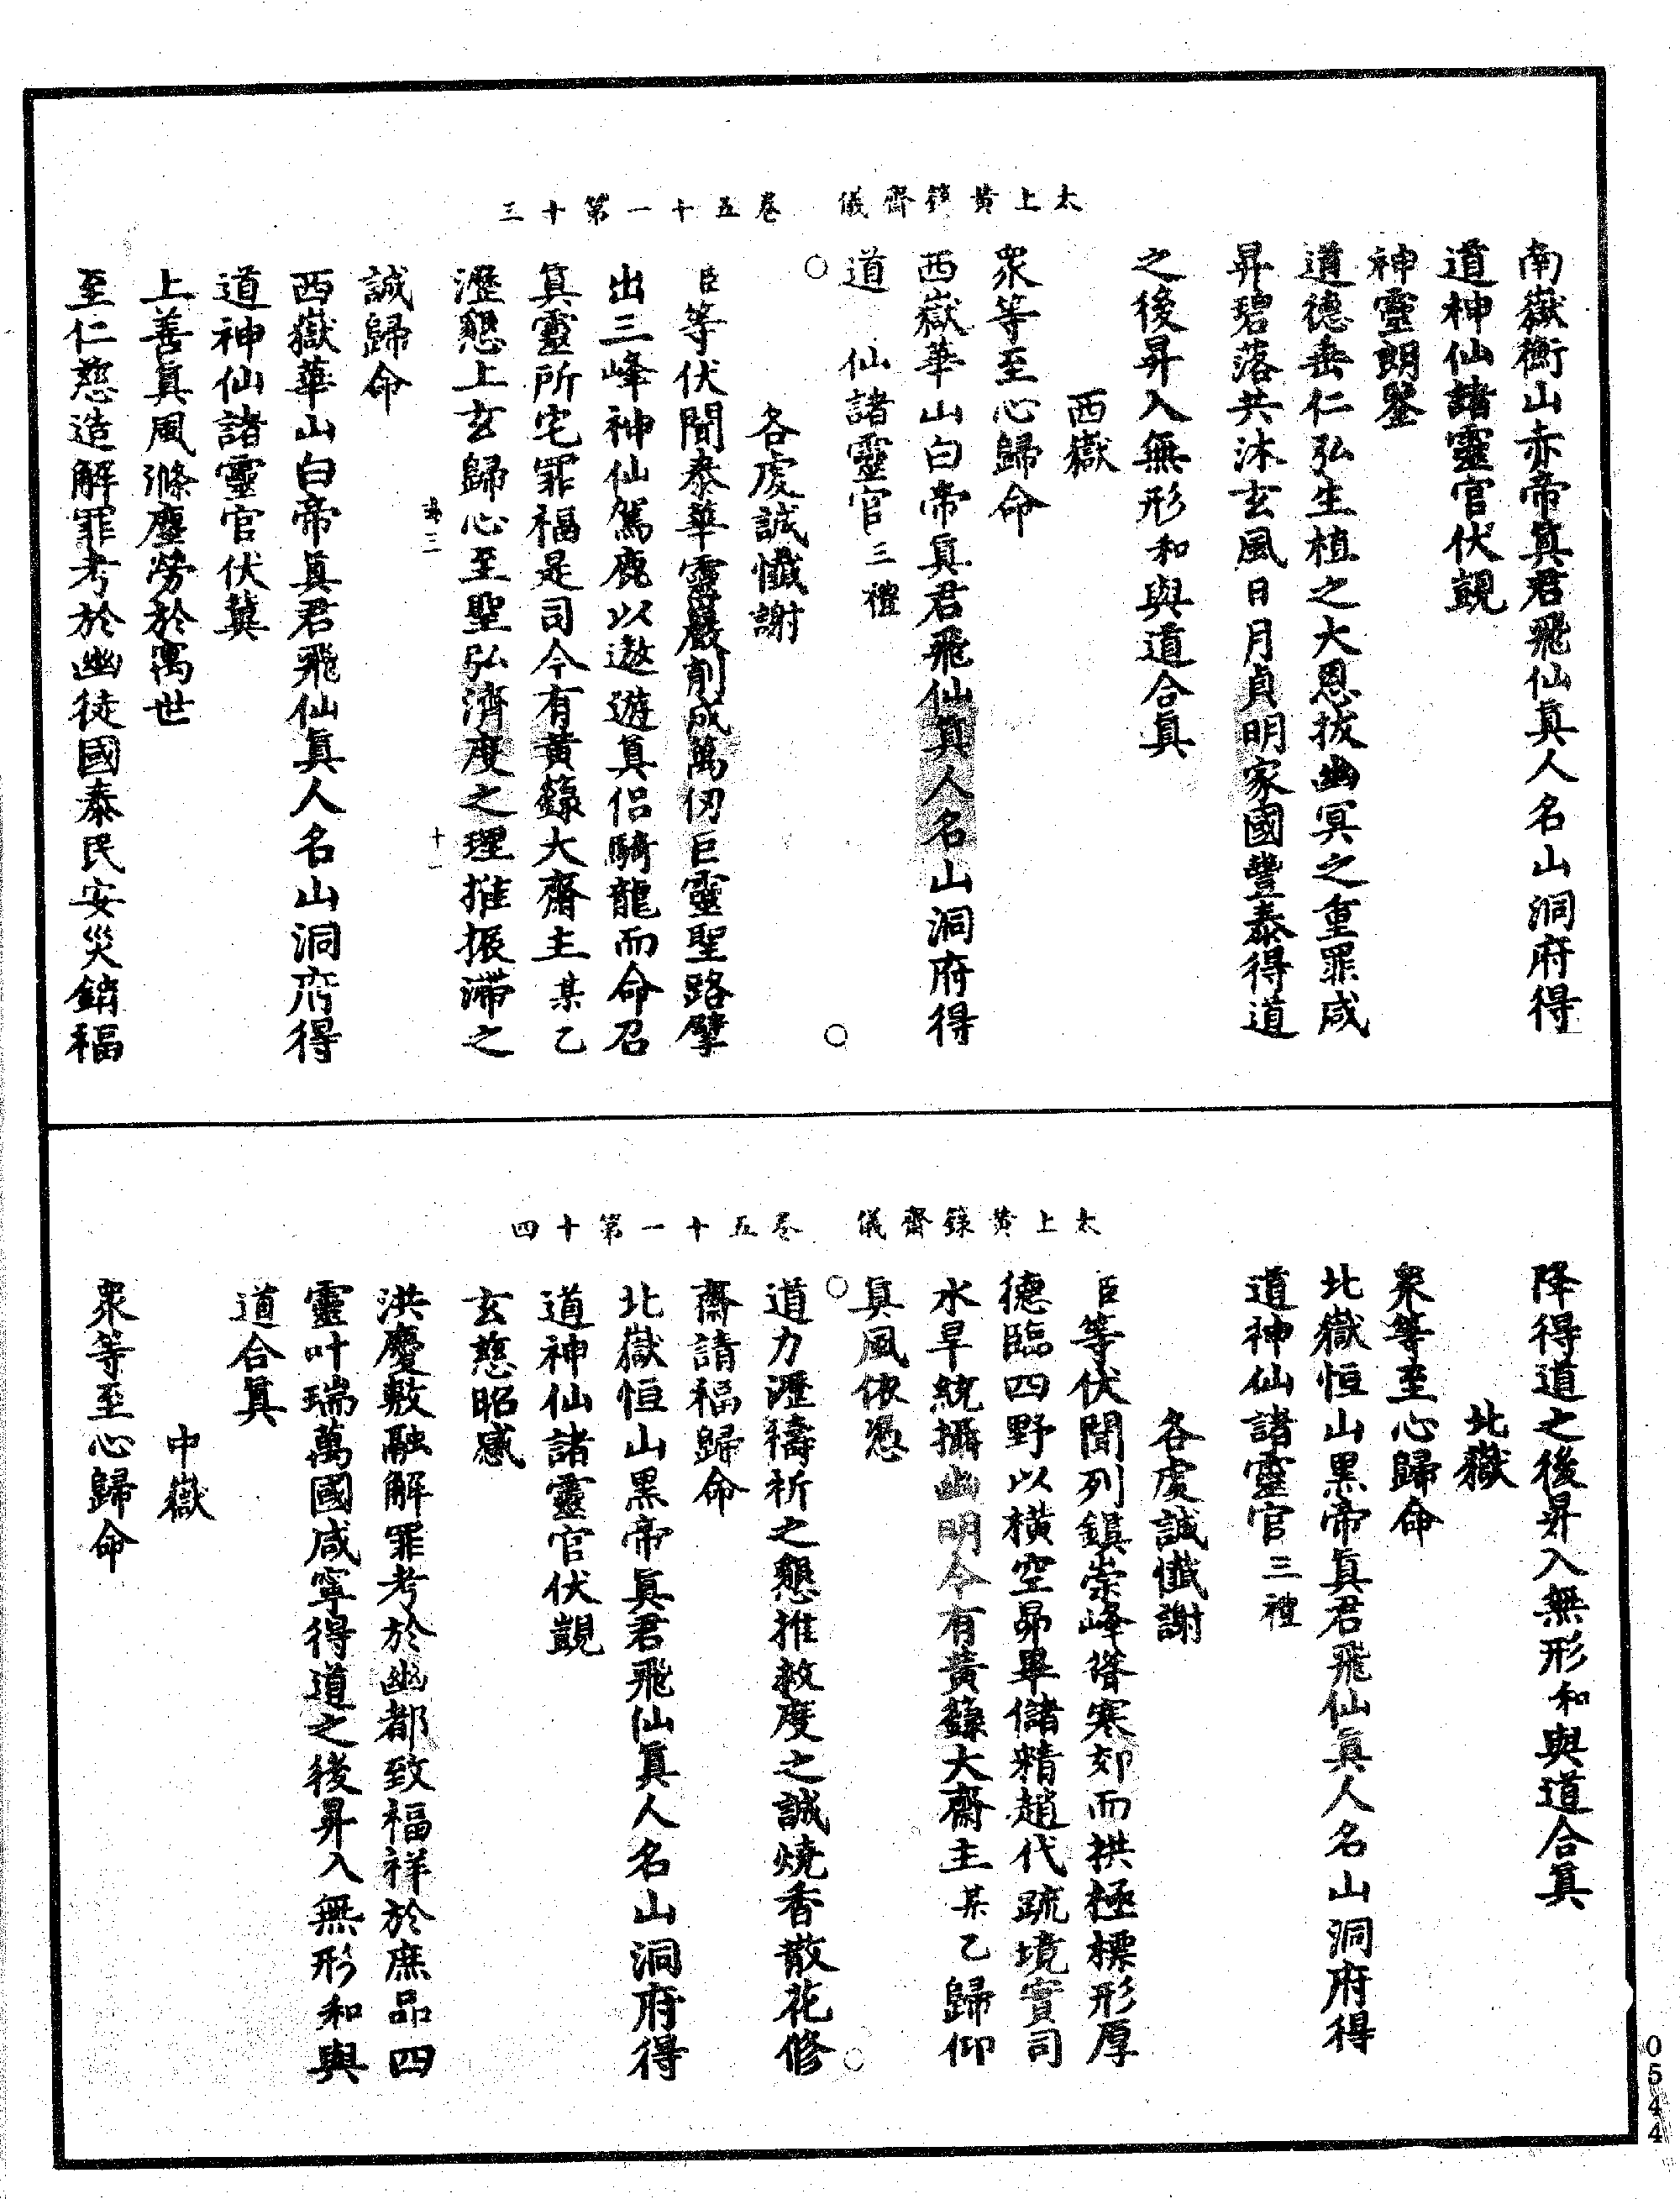 太上黃籙齋儀　卷五十一第十三
南嶽衡山赤帝眞君飛仙眞人名山洞府得
道神仙諸靈官伏覬
神靈朗鑒
道德垂仁弘生植之大恩拔幽冥之重罪咸
昇碧落共沐玄風日月貞明家國豐泰得道
之後昇入無形和與道合眞
西嶽
衆等至心歸命
西嶽華山白帝眞君飛仙眞人名山洞府得
道　仙諸靈官三禮
各虔誠懺謝
臣等伏聞泰華靈巖削成萬仞巨靈聖路擘
出三峰神仙駕鹿以遨遊眞侶騎龍而命召
眞靈所宅罪福是司今有黃籙大齋主某乙
瀝懇上玄歸心至聖弘濟度之理推振滯之
三　十一
誠歸命
西嶽華山白帝眞君飛仙眞人名山洞府得
道神仙諸靈官伏冀
上善眞風滌塵勞於寓世
至仁慈造解罪考於幽徒國泰民安災銷福
太上黃籙齋儀　卷五十一第十四
降得道之後昇入無形和與道合眞
北嶽
衆等至心歸命
北嶽恒山黑帝眞君飛仙眞人名山洞府得
道神仙諸靈官三禮
各虔誠懺謝
臣等伏聞列鎮崇峰峉寒郊而拱極標形厚
德臨四野以橫空昴畢儲精趙代疏境實司
水旱統攝幽明今有黃籙大齋主某乙歸仰
眞風依憑
道力瀝禱祈之懇推救度之誠燒香散花修
齋請福歸命
北嶽恒山黑帝眞君飛仙眞人名山洞府得
道神仙諸靈官伏覬
玄慈昭感
洪慶敷融解罪考於幽都致福祥於庶品四
靈叶瑞萬國咸寧得道之後昇入無形和與
道合眞
中嶽
衆等至心歸命
0544